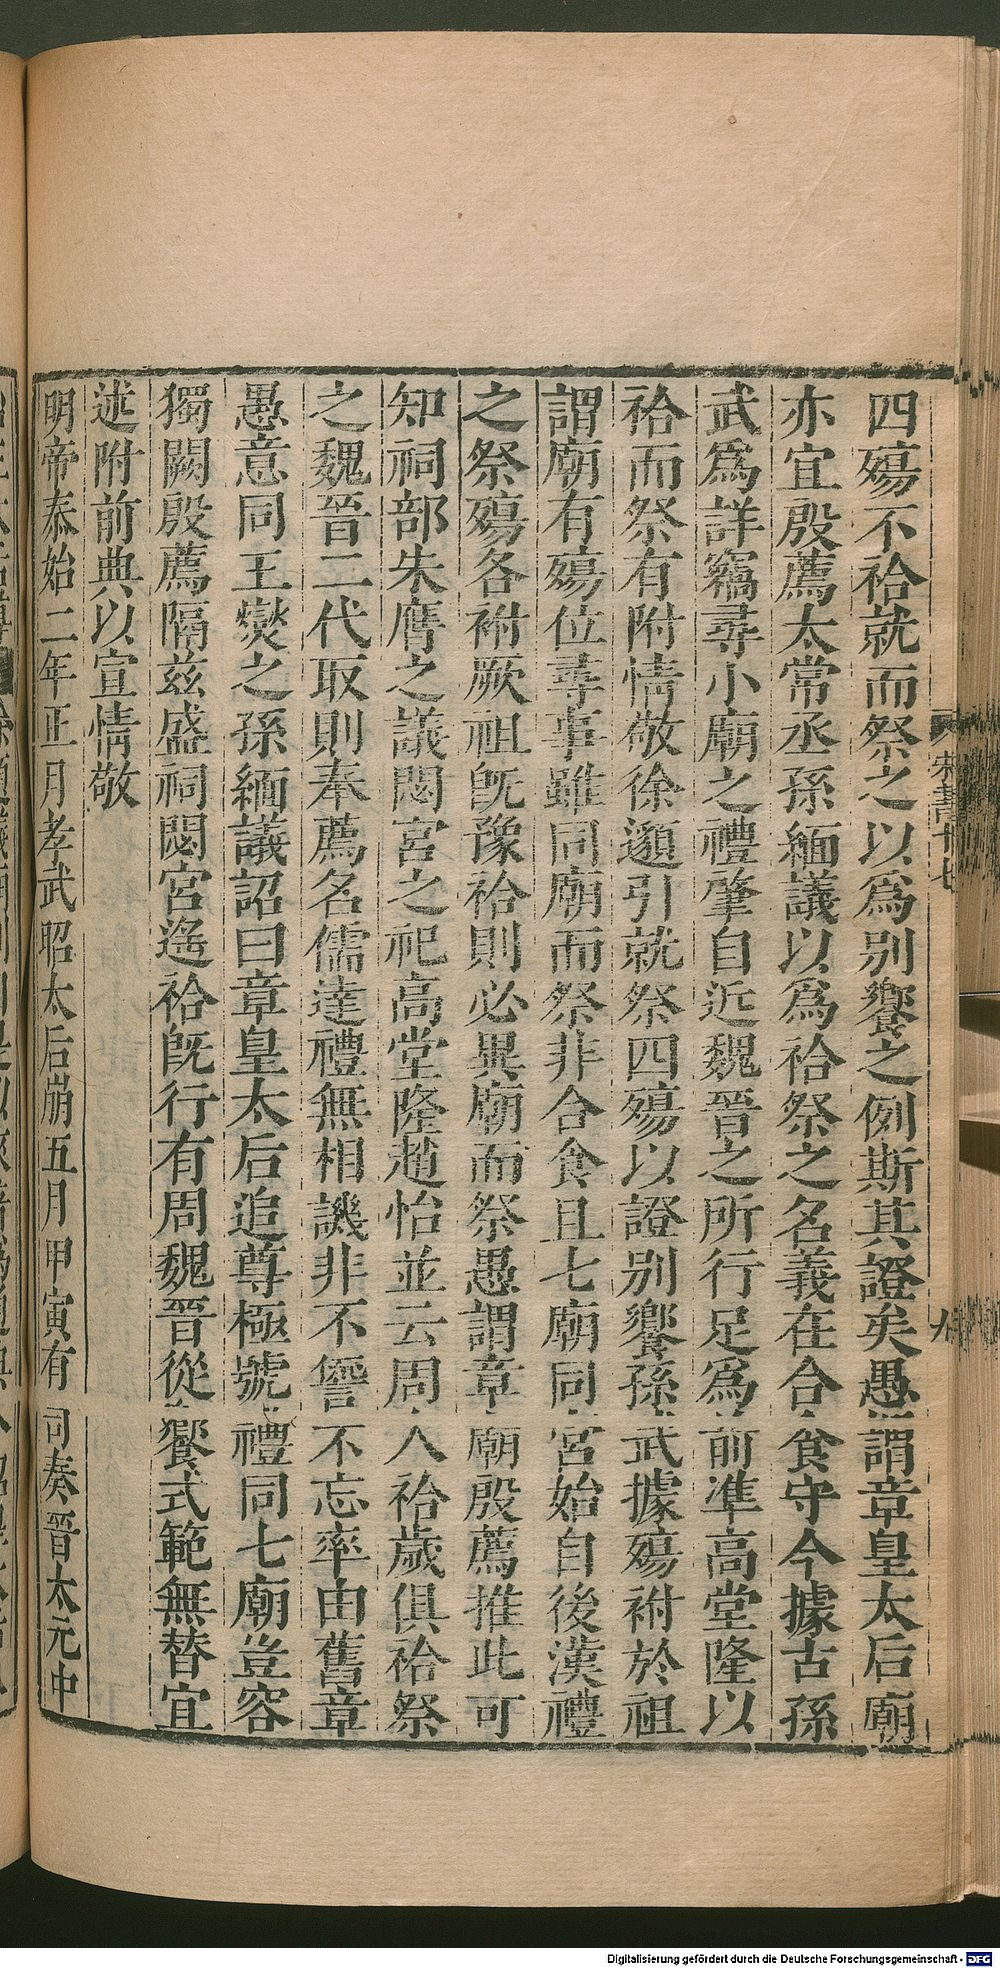 四殤不祫就而祭之以爲别饗之例斯其證矣愚謂章皇太后廟
亦宜殷薦太常丞孫緬議以爲祫祭之名義在合食守今據古孫
武爲詳竊尋小廟之禮肇自近魏晉之所行足爲前準高堂隆以
祫而祭有附情敬徐邈引就祭四殤以證别饗孫武據殤祔於祖
謂廟有殤位尋事雖同廟而祭非合食且七廟同宮始自後漢禮
之祭殤各祔厥祖旣豫祫則必異廟而祭愚謂章廟殷薦推此可
知祠部朱膺之議閟宮之祀高堂隆趙怡並云周人祫歲俱祫祭
之魏晉二代取則奉薦名儒達禮無相譏非不諐不忘率由舊章
愚意同王燮之孫緬議詔曰章皇太后追尊極號禮同七廟豈容
獨闕殷薦隔兹盛祠閟宮遙祫旣行有周魏晉從饗式範無替宜
述附前典以宣情敬
明帝泰始二年正月孝武昭太后崩五月甲寅有司奏晉太元中
宋書志十七
九
Digitalisierung gefördert durch die Deutsche Forschungsgemeinschaft - DFG